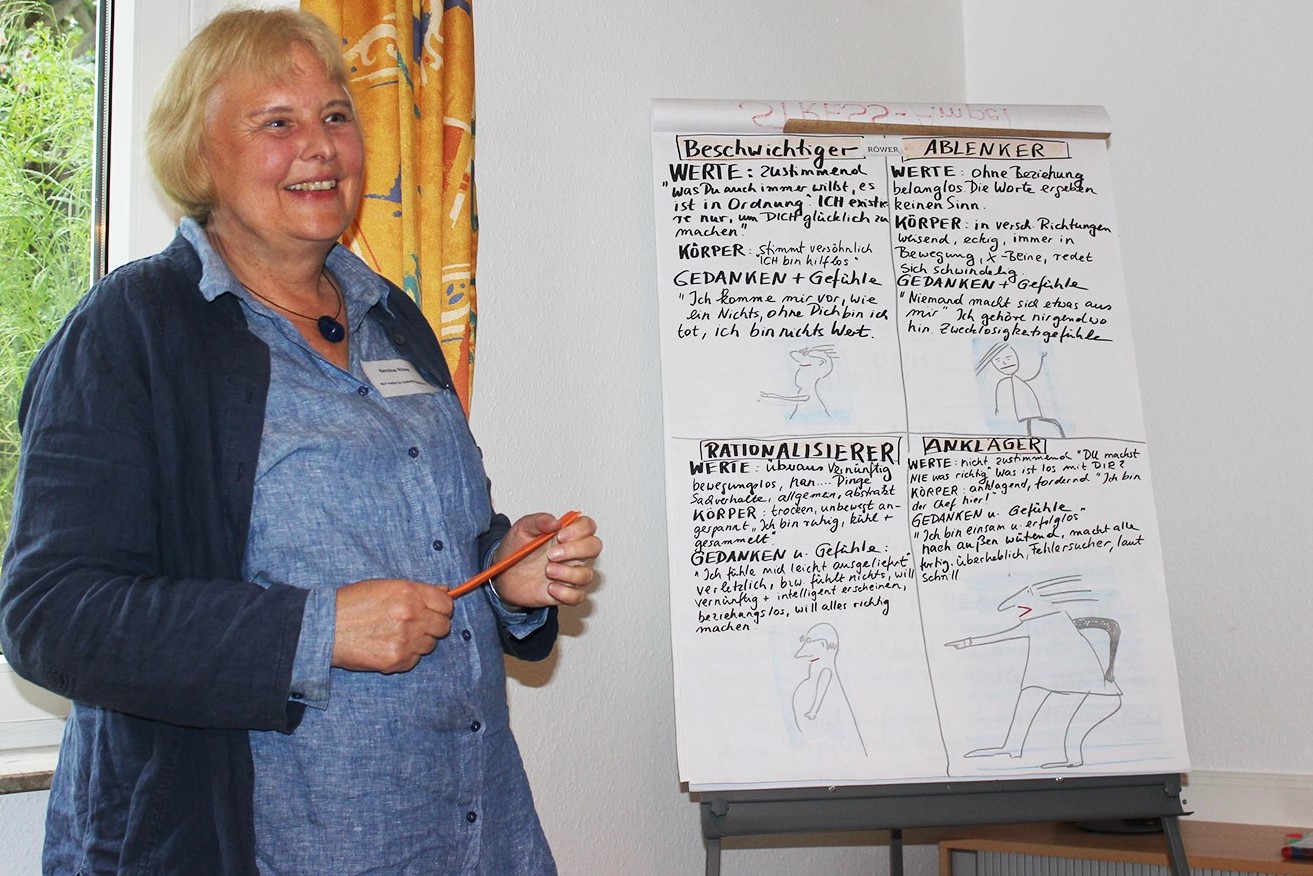 STRESS-Ampel
Beschwichtiger
WERTE: Zustimmend
"Was Du auch immer willst, es
ist in Ordnung". ICH existie
re nur, um DICH glücklich zu
machen."
KÖRPER: Stimmt versöhnlich
"ICH bin hilflos"
GEDANKEN + Gefühle
"Ich komme mir vor, wie
ein Nichts, ohne Dich bin ich
tot, ich bin nichts Wert.
RÖWER
ABLENKER
WERTE: ohne Beziehung
belanglos Die Worte ergeben
keinen Sinn.
KÖRPER: in versch. Richtungen
weisend, eckig, immer in
Bewegung, X-Beine, redet
sich schwindelig.
GEDANKEN + Gefühle
"Niemand macht sich etwas aus
mir" Ich gehöre nirgendwo
hin. Zwecklosigkeitsgefühle
RATIONALISIERER
WERTE: überaus vernünftig
bewegungslos, man.... Dinge
Sachverhalte, allgemein, abstrakt
KÖRPER: trocken, unbewegt an-
gespannt "Ich bin ruhig, kühl +
gesammelt"
GEDANKEN u. Gefühle:
"Ich fühle mich leicht ausgeliefert"
verletzlich, bzw. fühlt nichts, will
vernünftig + intelligent erscheinen,
beziehungslos, will alles richtig
machen.
ANKLÄGER
WERTE: nicht zustimmend "DU machst
NIE was richtig" Was ist los mit DIR?
KÖRPER: anklagend, fordernd "Ich bin
der Chef hier!"
GEDANKEN u. Gefühle
"Ich bin einsam u. erfolglos"
nach außen wütend, macht alle
fertig, überheblich, Fehlersucher, laut
schrill